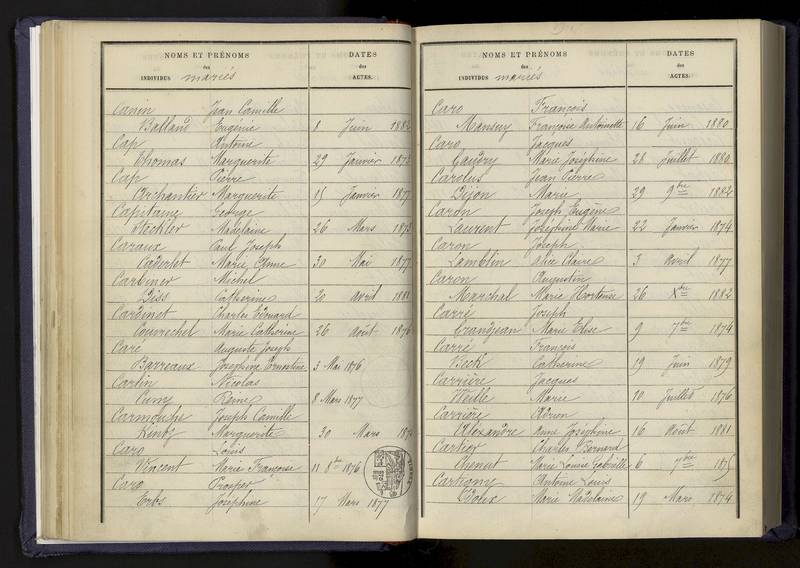 NOMS ET PRÉNOMS
des
INDIVIDUS mariés
DATES
des
ACTES.
Canin Jean Camille
Balland Eugénie 8 Juin 1882
Cap Antoine
Thomas Marguerite 29 Janvier 1878
Cap Pierre
Archantier Marguerite 15 Janvier 1877
Capitaine George
Steckler Madelaine 26 Mars 1873
Caraux Paul Joseph
Caderlet Marie Anne 30 Mai 1877
Carbiner Michel
Diss Catherine 20 Avril 1881
Cardinet Charles Edouard
Couvrechel Marie Catherine 26 Août 1876
Caré Auguste Joseph
Barreaux Joséphine Ernestine 3 Mai 1876
Carlin Nicolas
Cuny Reine 8 Mars 1877
Carmouche Joseph Camille
Kintz Marguerite 30 Mars
Caro Louis
Vincent Marie Françoise 11 8bre 1876
Caro Prosper
Erbs Joséphine 17 Mars 1877
NOMS ET PRÉNOMS
des
INDIVIDUS mariés
DATES
des
ACTES.
Caro François
Mansuy Françoise Antoinette 16 Juin 1880
Caro Jacques
Gaudry Marie Joséphine 28 Juillet 1880
Carolus Jean Pierre
Dijon Marie 29 9bre 1882
Caron Joseph Eugène
Laurent Joséphine Marie 22 Janvier 1874
Caron Joseph
Lamblin Alix Claire 3 Avril 1877
Caron Augustin
Marchal Marie Hortense 26 Xbre 1882
Carré Joseph
Grandjean Marie Elise 9 7bre 1874
Carré François
Beck Catherine 19 Juin 1879
Carrière Jacques
Weille Marie 10 Juillet 1876
Carrière
Alexandre Anne Joséphine 16 Août 1881
Cartier Charles Bernard
Thenut Marie Louise Gabrielle 6 7bre 1875
Cartigny Antoine Louis
Marie Madelaine 19 Mars 1874